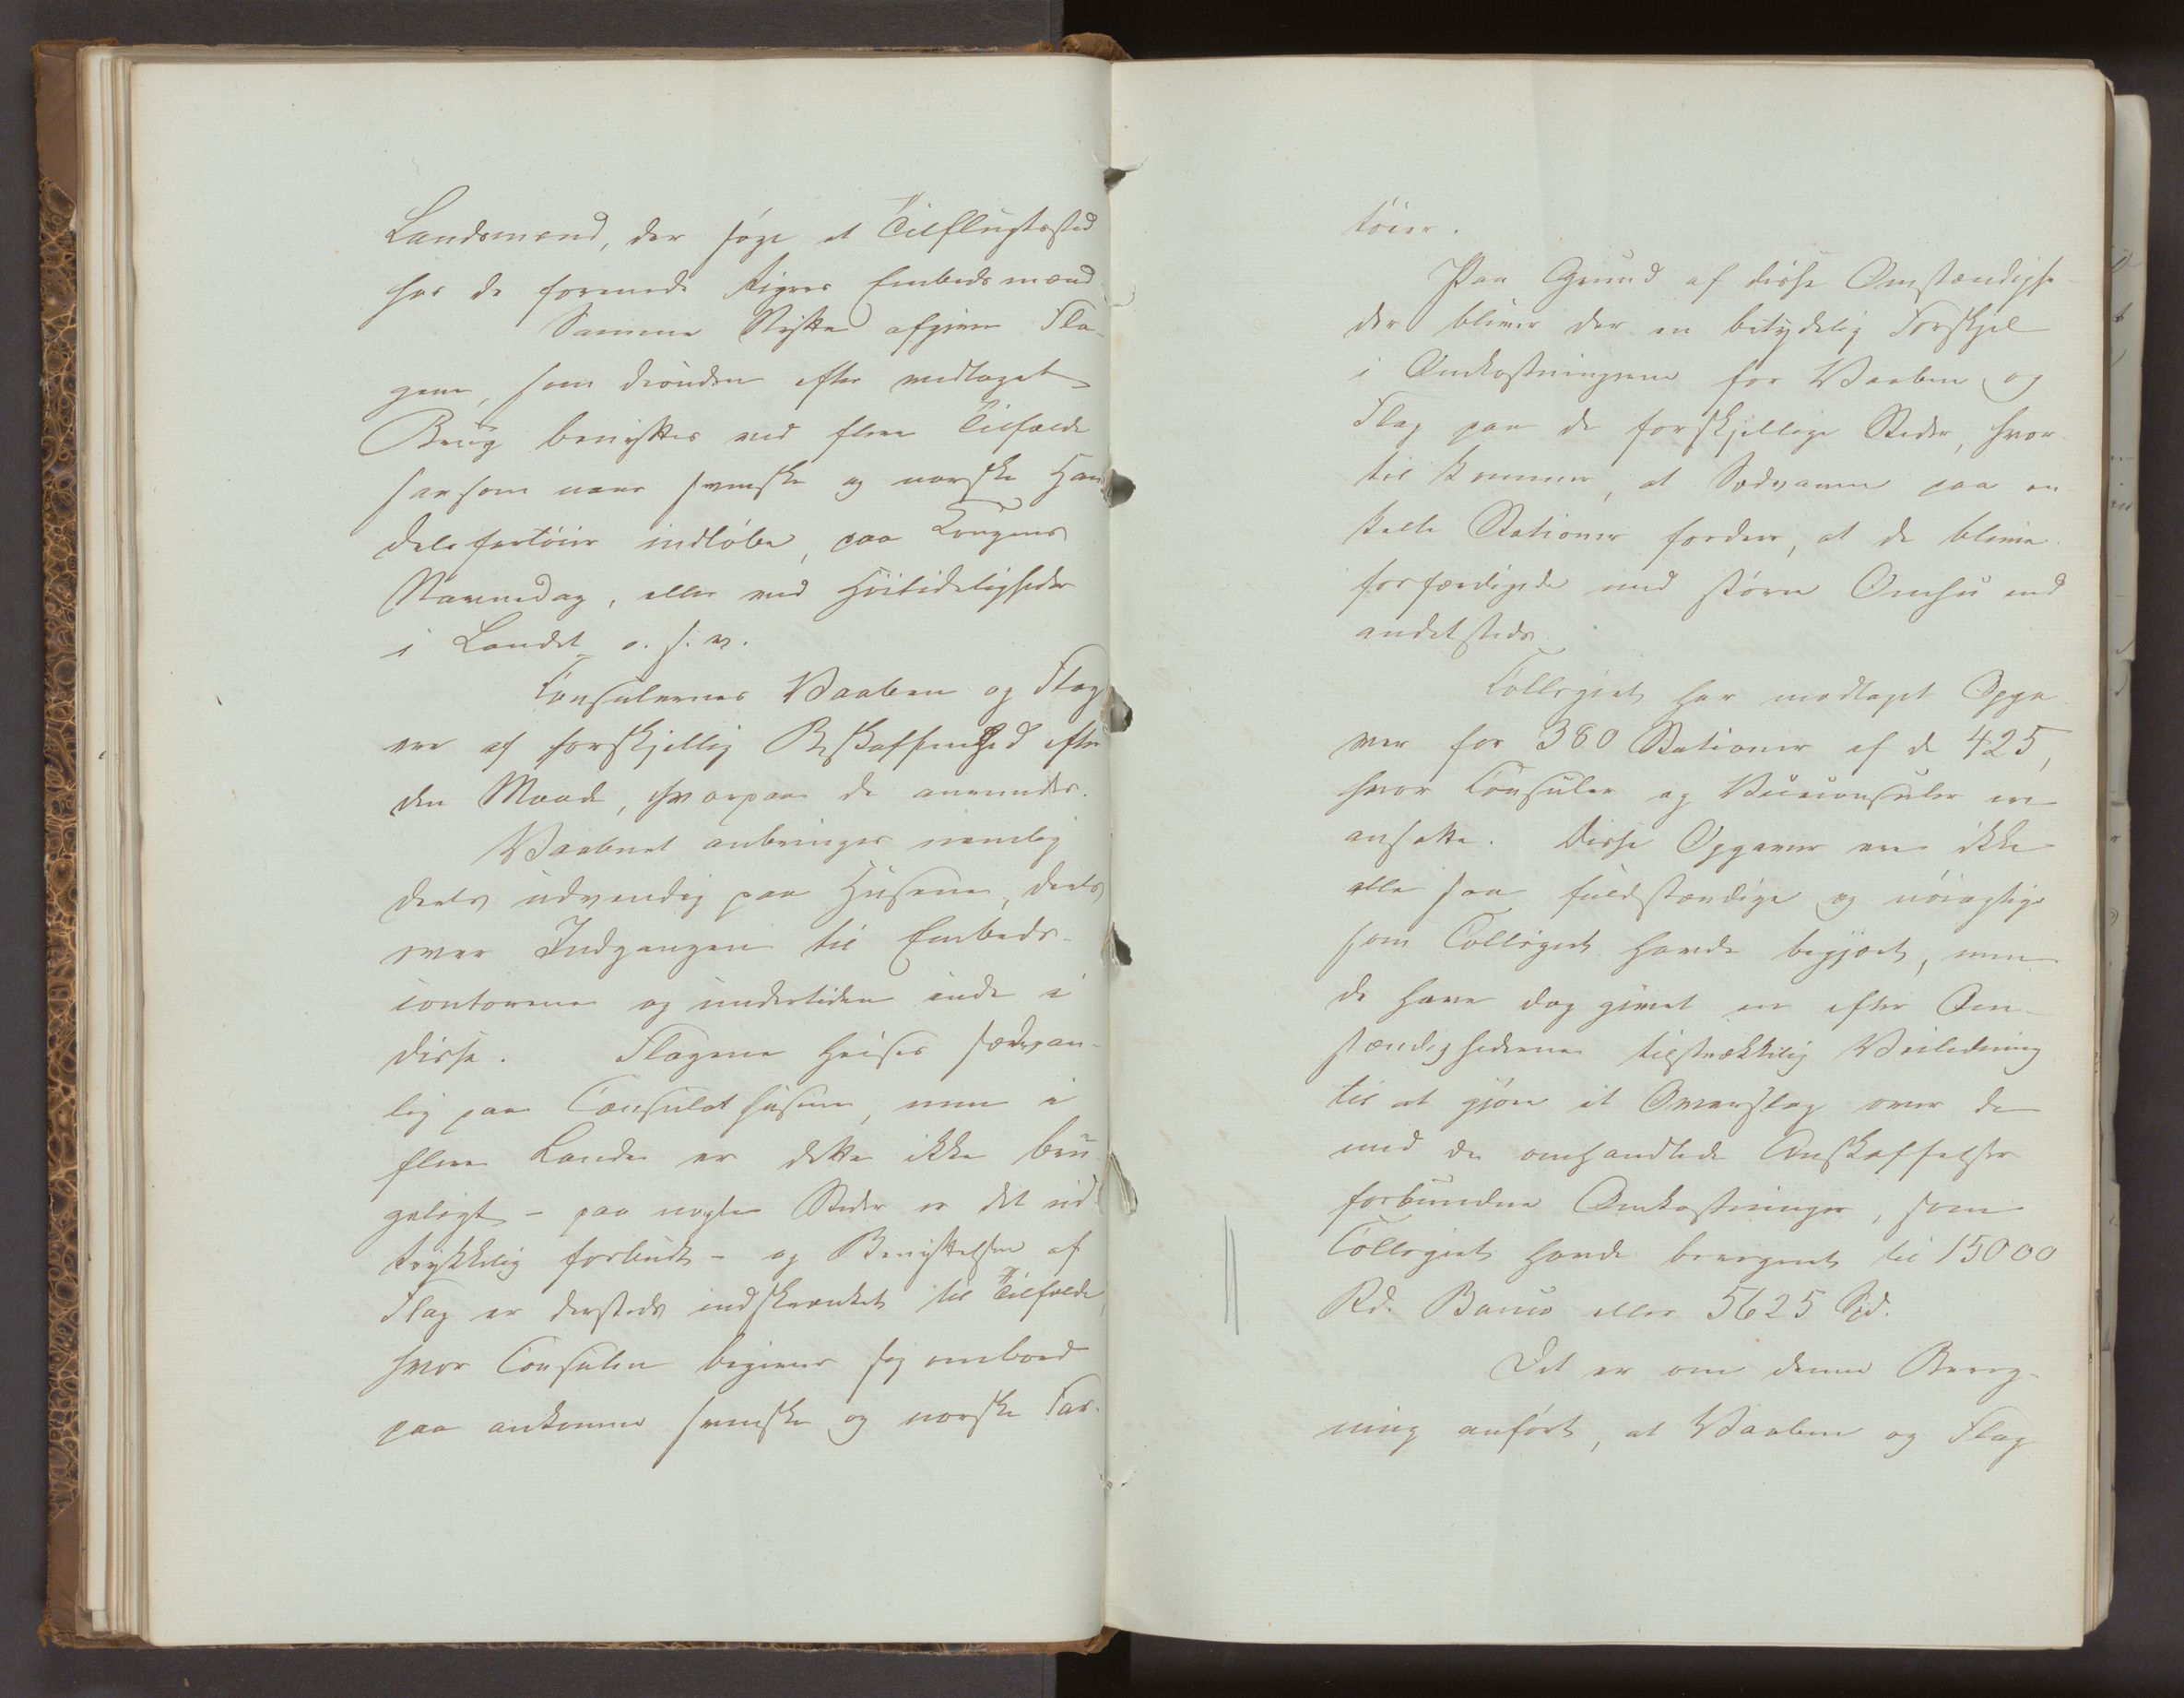 Landsmænd, der søge et Tilflugtssted
hos de forenede Rigers Embedsmænd
Samme Nytte afgive Fla-
gene, som desuden efter vedtaget
Brug benyttes ved flere Tilfælde
saasom naar svenske og norske Han-
delsfartöier indløbe, paa Kongens
Navnedag, eller ved Höitideligheder
i Landet o. s. v.
Consulernes Vaaben og Flag
ere af forskjellig Beskaffenhed efter
den Maade, hvorpaa de anvendes.
Vaabnet anbringes nemlig
deels udvendig paa Husene, deels
over Indgangen til Embeds-
contorene og undertiden inde i
disse. Flagene heises sædvan-
lig paa Consulathusene, men i
flere Lande er dette ikke bru-
geligt - paa nogle Steder er det ud-
trykkelig forbudt - og Benyttelsen af
Flag er dersteds indskrænket til Tilfælde,
hvor Consulen begiver sig ombord
paa ankomne svenske og norske Far-
töier.
Paa Grund af disse Omstændighe-
der bliver der en betydelig Forskjel
i Omkostningerne for Vaaben og
Flag paa de forskjellige Steder, hvor-
til kommer, at Sædvanen paa en-
kelte Stationer fordrer, at de blive
forfærdigede med større Omhu end
andetsteds.
Collegiet har modtaget Opga-
ver for 380 Stationer af de 425,
hvor Consuler og Viceconsuler ere
ansatte. Disse Opgaver ere ikke
alle saa fuldstændige og nöiagtige
som Collegiet havde begjært, men
de have dog givet en efter Om-
stændighederne tilstrækkelig Veiledning
til at gjøre et Overslag over de
med de omhandlede Anskaffelser
forbundne Omkostninger, som
Collegiet havde beregnet til 15000
Rd. Banco eller 5625 Spd.
Det er om denne Bereg-
ning anført, at Vaaben og Flag